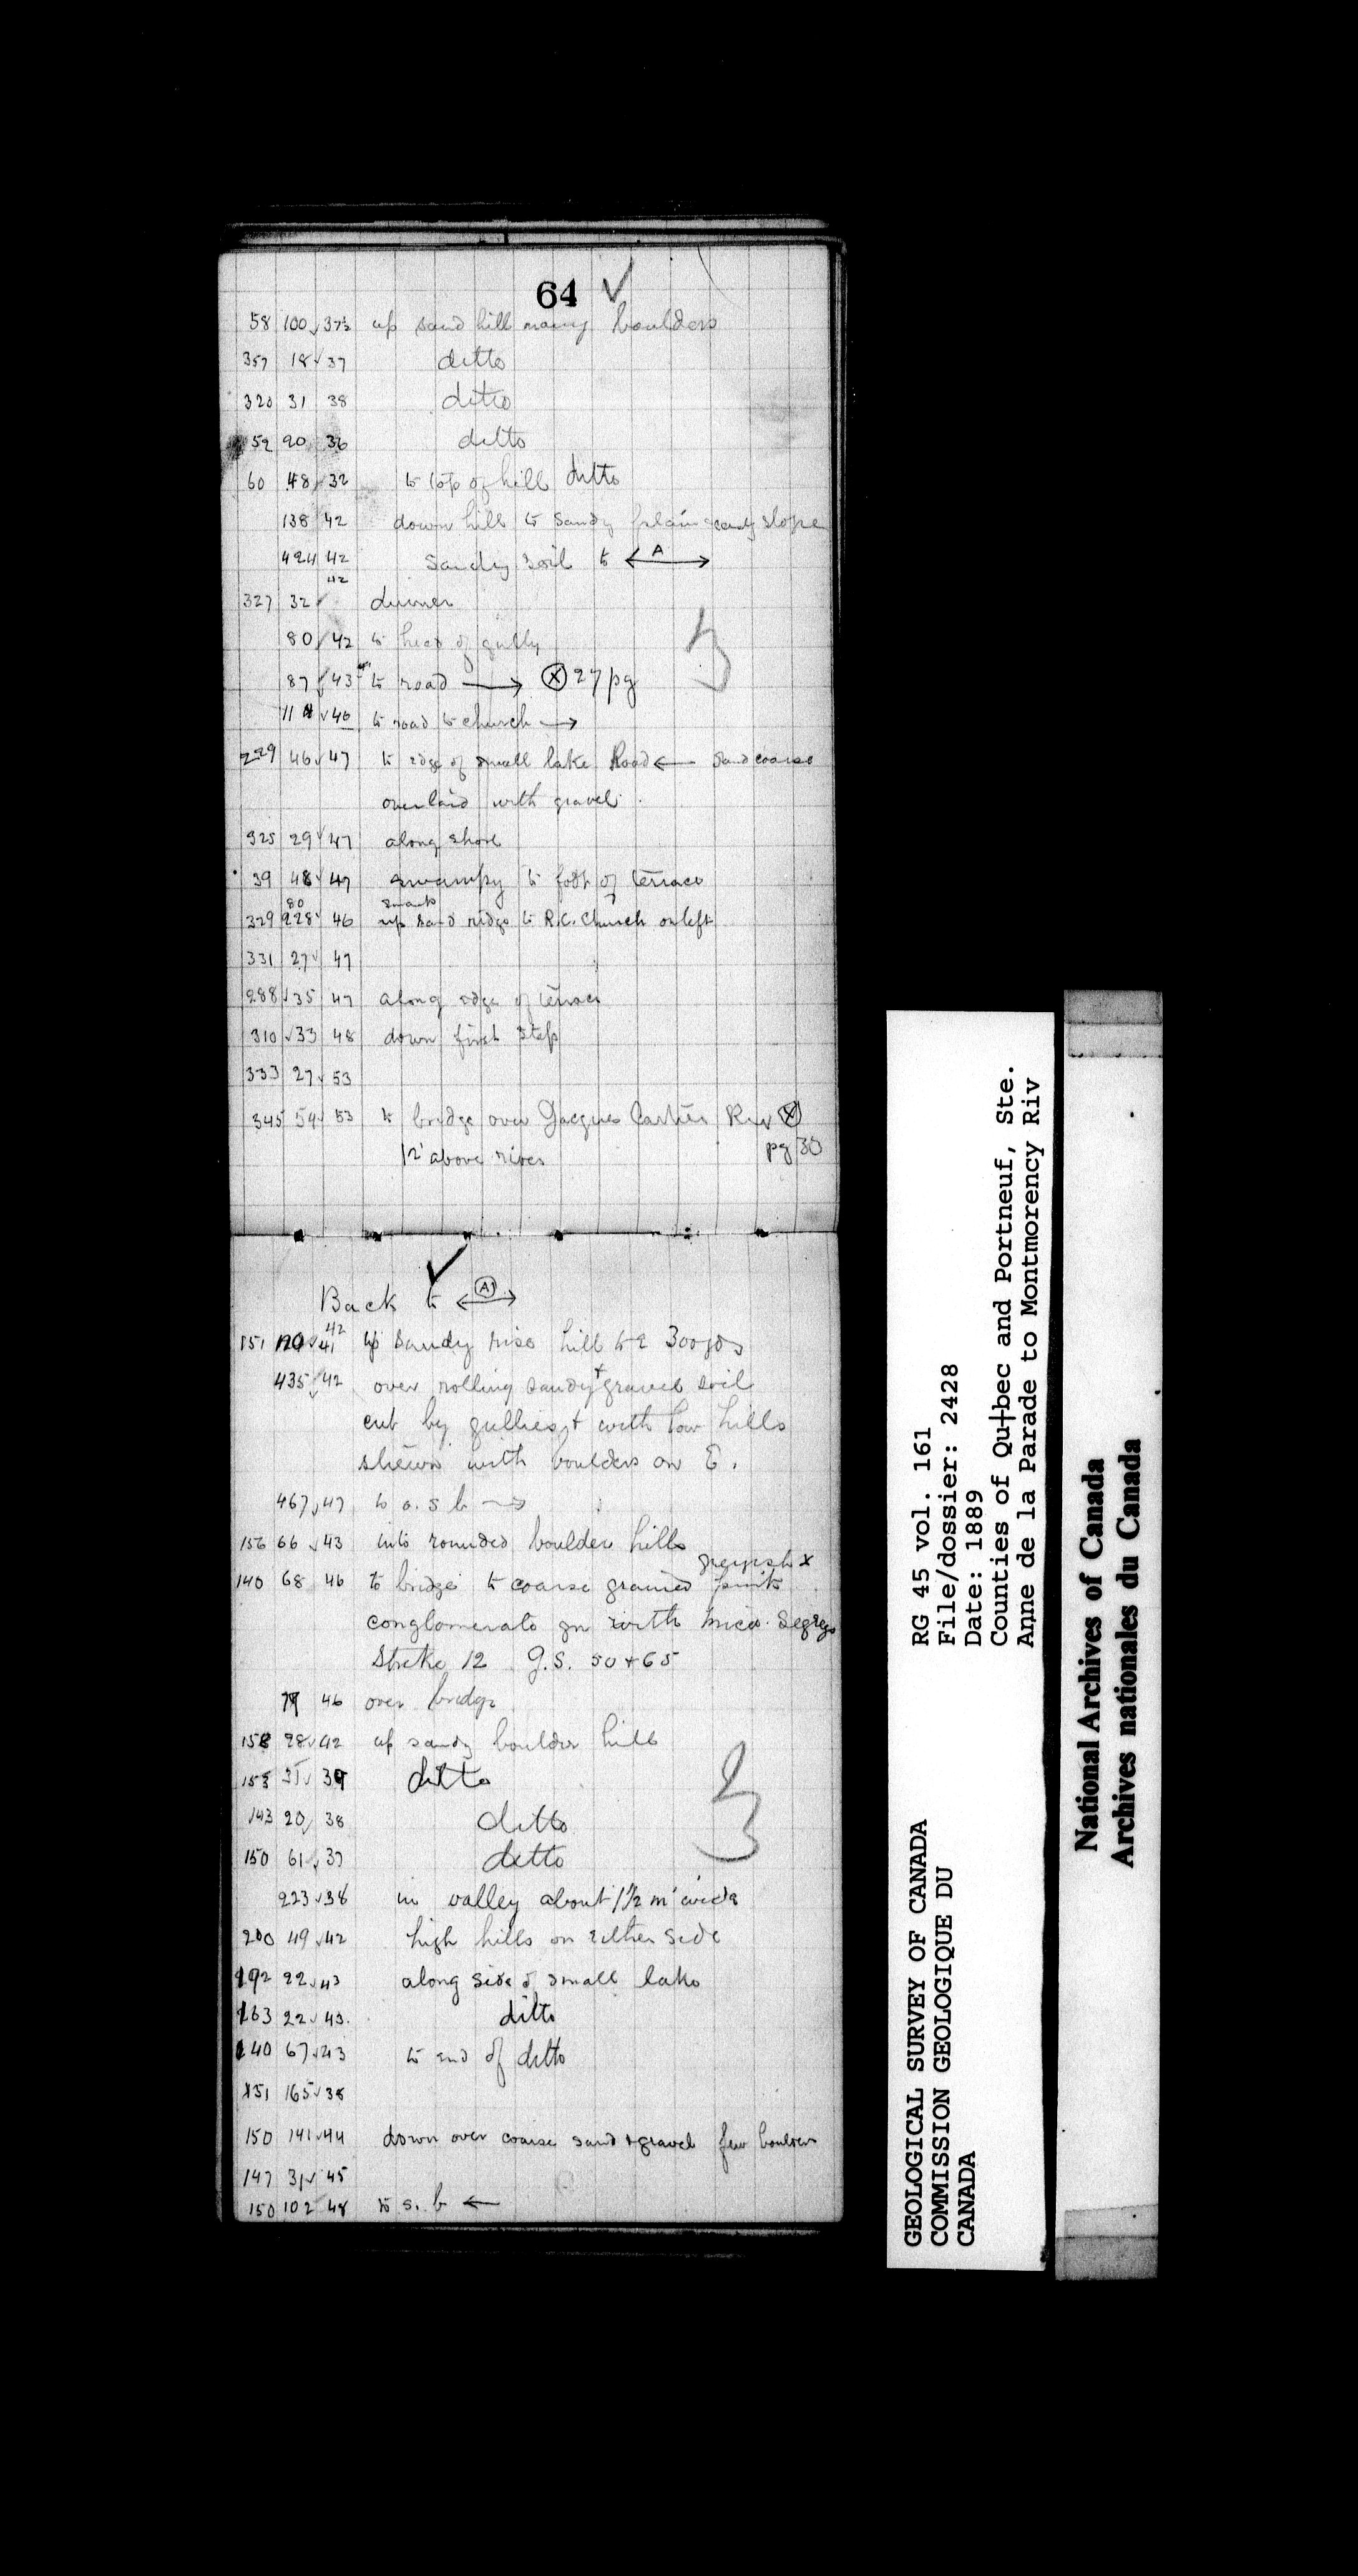 64 ✓
58 100 ✓ 37½ up sand hill many boulders
357 18 ✓ 37 ditto
320 31 38 ditto
52 20 36 ditto
60 48 ✓ 32 to top of hill ditto
138 42 down hill to sandy plain slope
424 42 sandy soil to ← A →
42
327 32 ✓ dinner
80 ✓ 42 to head of gully
87 ✓ 43 to road → ⓧ 27 pg
✓ 46 to road to church →
229 46 ✓ 47 to edge of small lake Road ← sand coarse
overlaid with gravel
325 29 ✓ 47 along shore
39 48 ✓ 47 swampy to foot of terrace
80
329 228 ✓ 46 up sand ridge to R.C. Church on left
331 27 ✓ 47
288 ✓ 35 47 along edge of terrace
310 ✓ 33 48 down first step
333 27 ✓ 53
345 54 ✓ 53 to bridge over Jacques Cartier Riv ⓧ
12' above river pg 30
✓
Back to ← Ⓐ →
42
151 ✓ 41 up sandy rise hill to 2 300 yds
435 ✓ 42 over rolling sandy + gravel soil
cut by gullies + with low hills
strewn with boulders on E.
467 ✓ 47 to a. s b →
156 66 ✓ 43 into rounded boulder hills
greyish x
140 68 46 to bridge to coarse grained pink
conglomerate gn with mica segregs
Strike 12 G.S. 50 + 65
46 over bridge
158 28 ✓ 42 up sandy boulder hill
153 31 ✓ 39 ditto
143 20 ✓ 38 ditto
150 61 ✓ 37 ditto
223 ✓ 38 in valley about 1½ m wide
200 49 ✓ 42 high hills on either side
192 22 ✓ 43 along side of small lake
163 22 ✓ 43 ditto
140 67 ✓ 43 to end of ditto
151 165 ✓ 38
150 141 ✓ 44 down over coarse sand + gravel few boulders
147 31 ✓ 45
150 102 ✓ 48 to s. b ←
GEOLOGICAL SURVEY OF CANADA
COMMISSION GEOLOGIQUE DU
CANADA
RG 45 vol. 161
File/dossier: 2428
Date: 1889
Counties of Qu†bec and Portneuf, Ste.
Anne de la Parade to Montmorency Riv
National Archives of Canada
Archives nationales du Canada